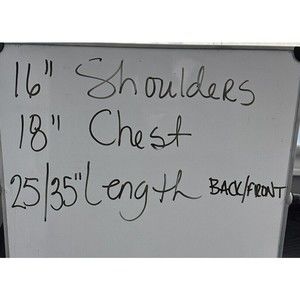 16" Shoulders
18" Chest
25/35" Length BACK/FRONT